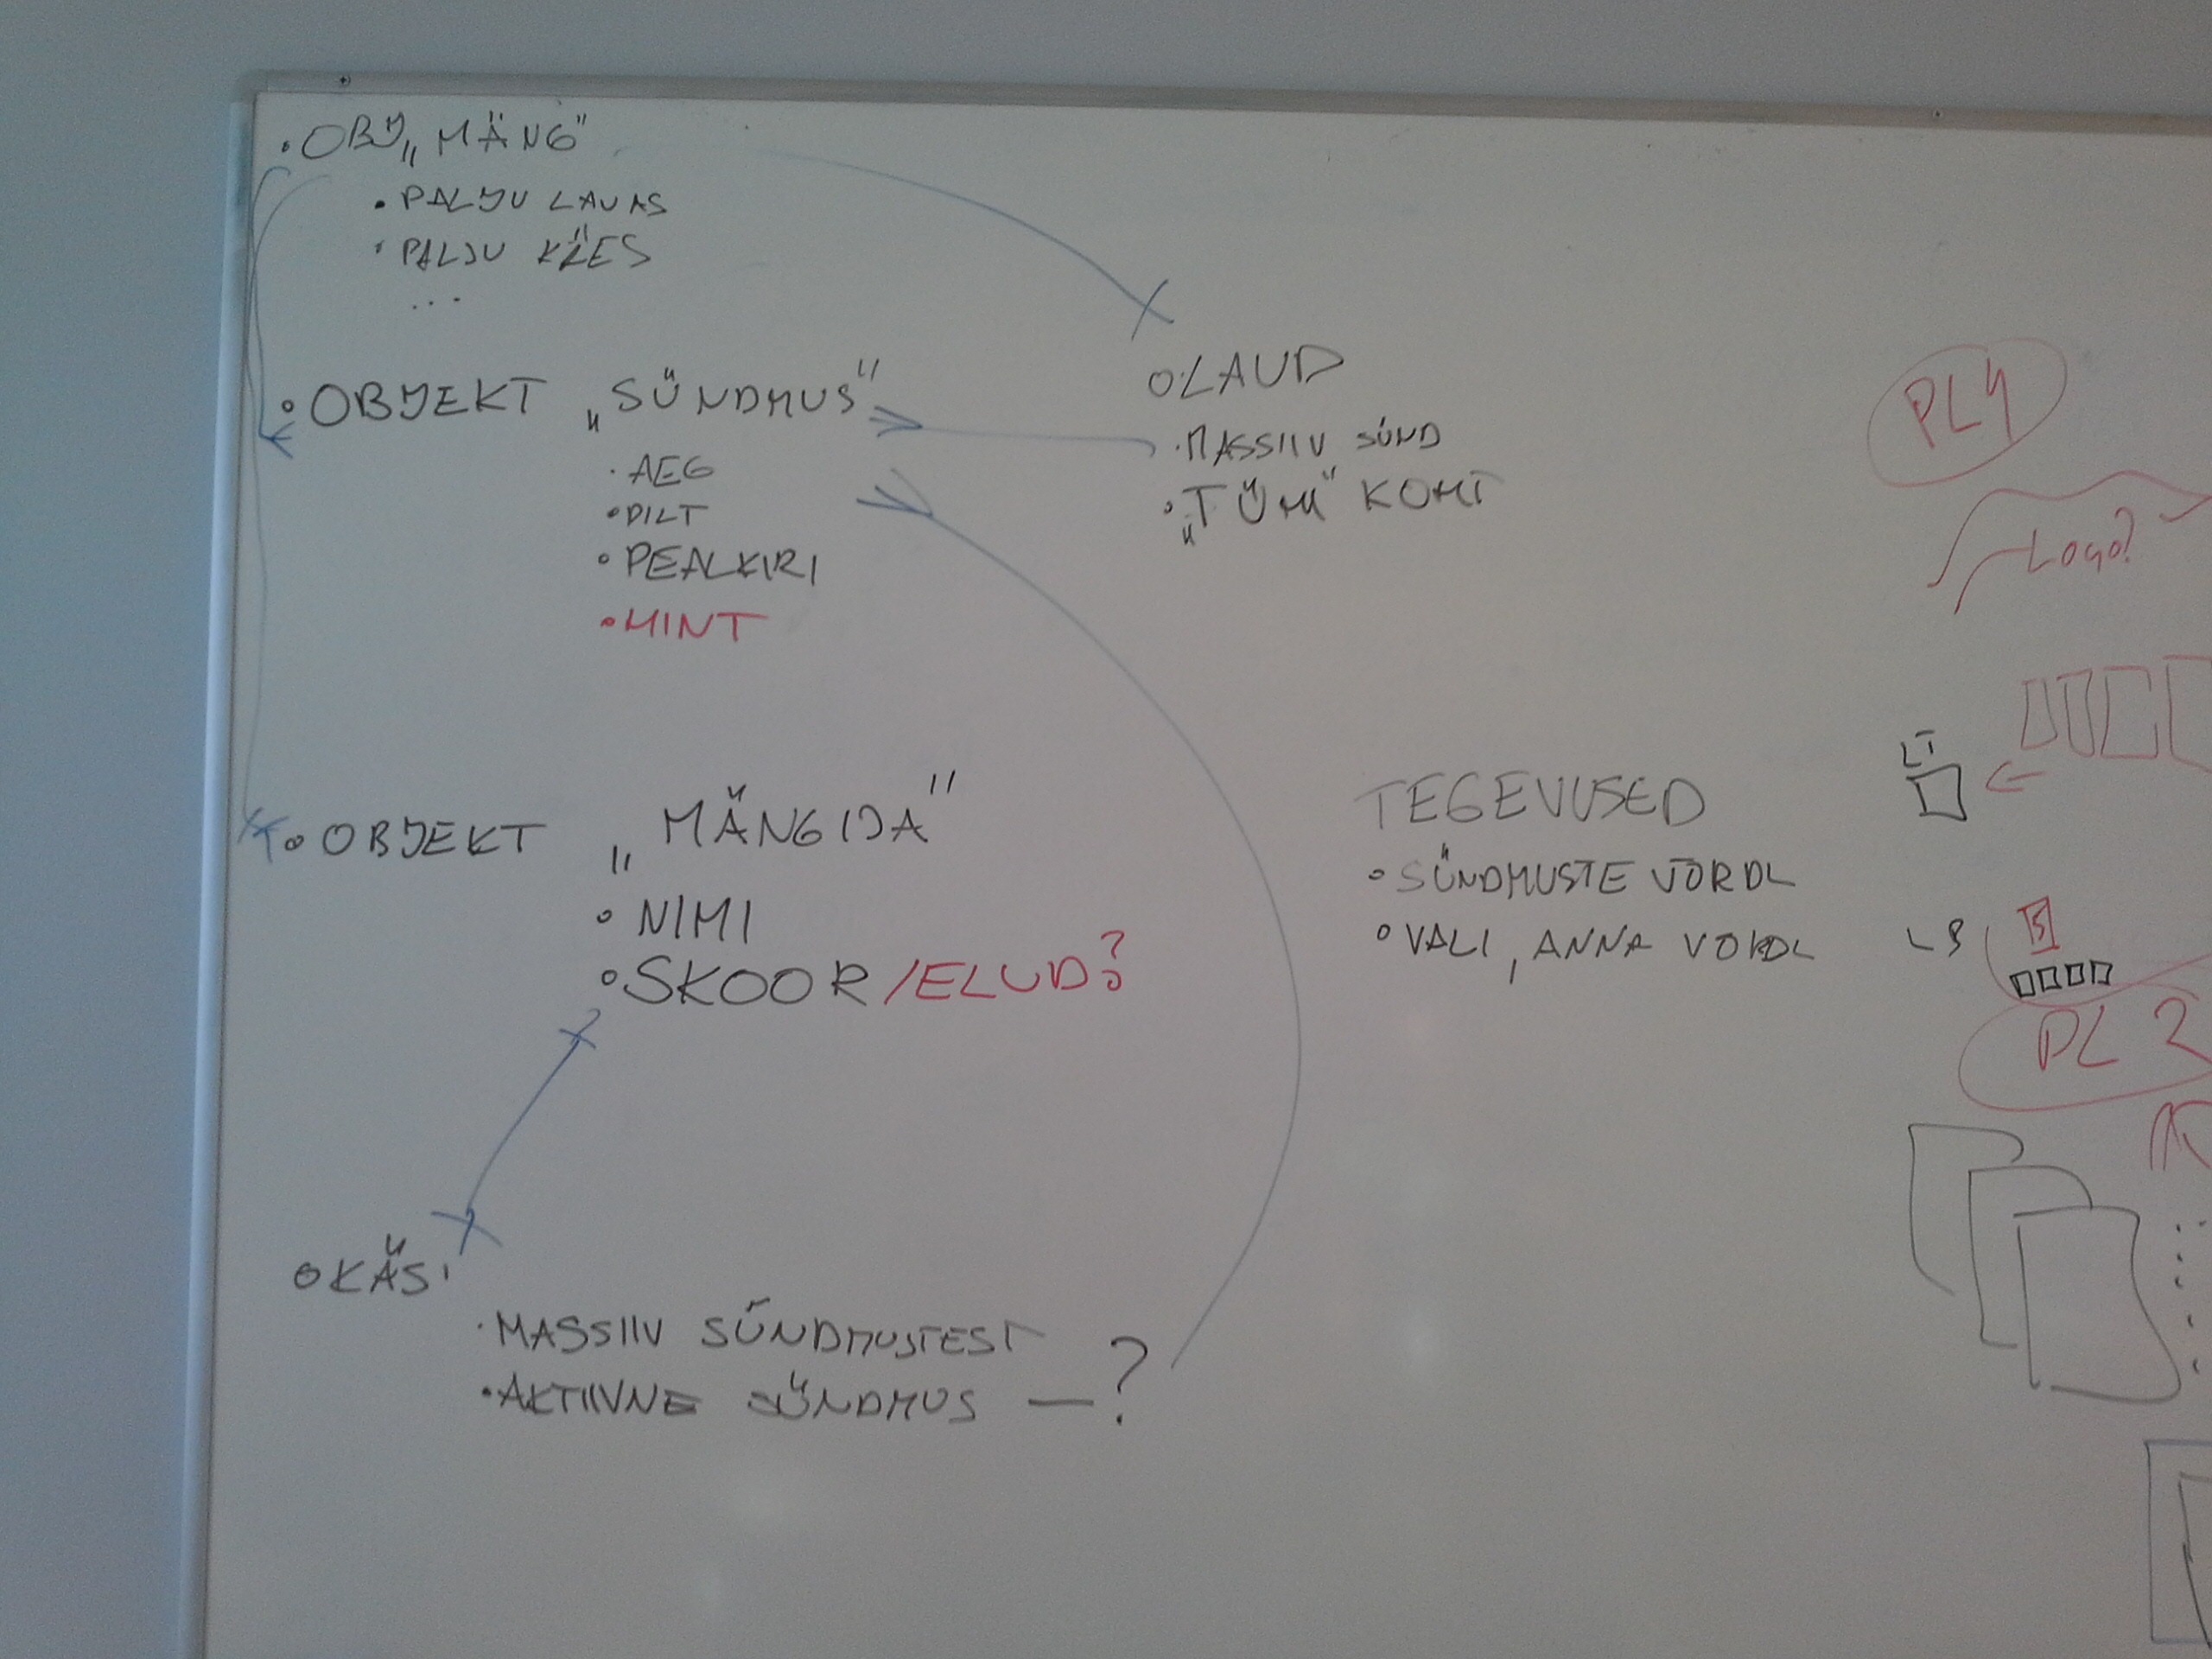 • OBJ „MÄNG"
• PALJU LAUAS
• PALJU KÄES
...
• OBJEKT „SÜNDMUS"
• AEG
• PILT
• PEALKIRI
• HINT
• OBJEKT „MÄNGIJA"
• NIMI
• SKOOR/ELUD?
○ KÄSI
• MASSIIV SÜNDMUSTEST
• AKTIIVNE SÜNDMUS — ?
○ LAUD
• MASSIIV SÜND
• „TÜHI" KOHT
TEGEVUSED
• SÜNDMUSTE VÕRDL
• VALI, ANNA VÕRDL
PL4
Logo?
LT
L
5
PL 2